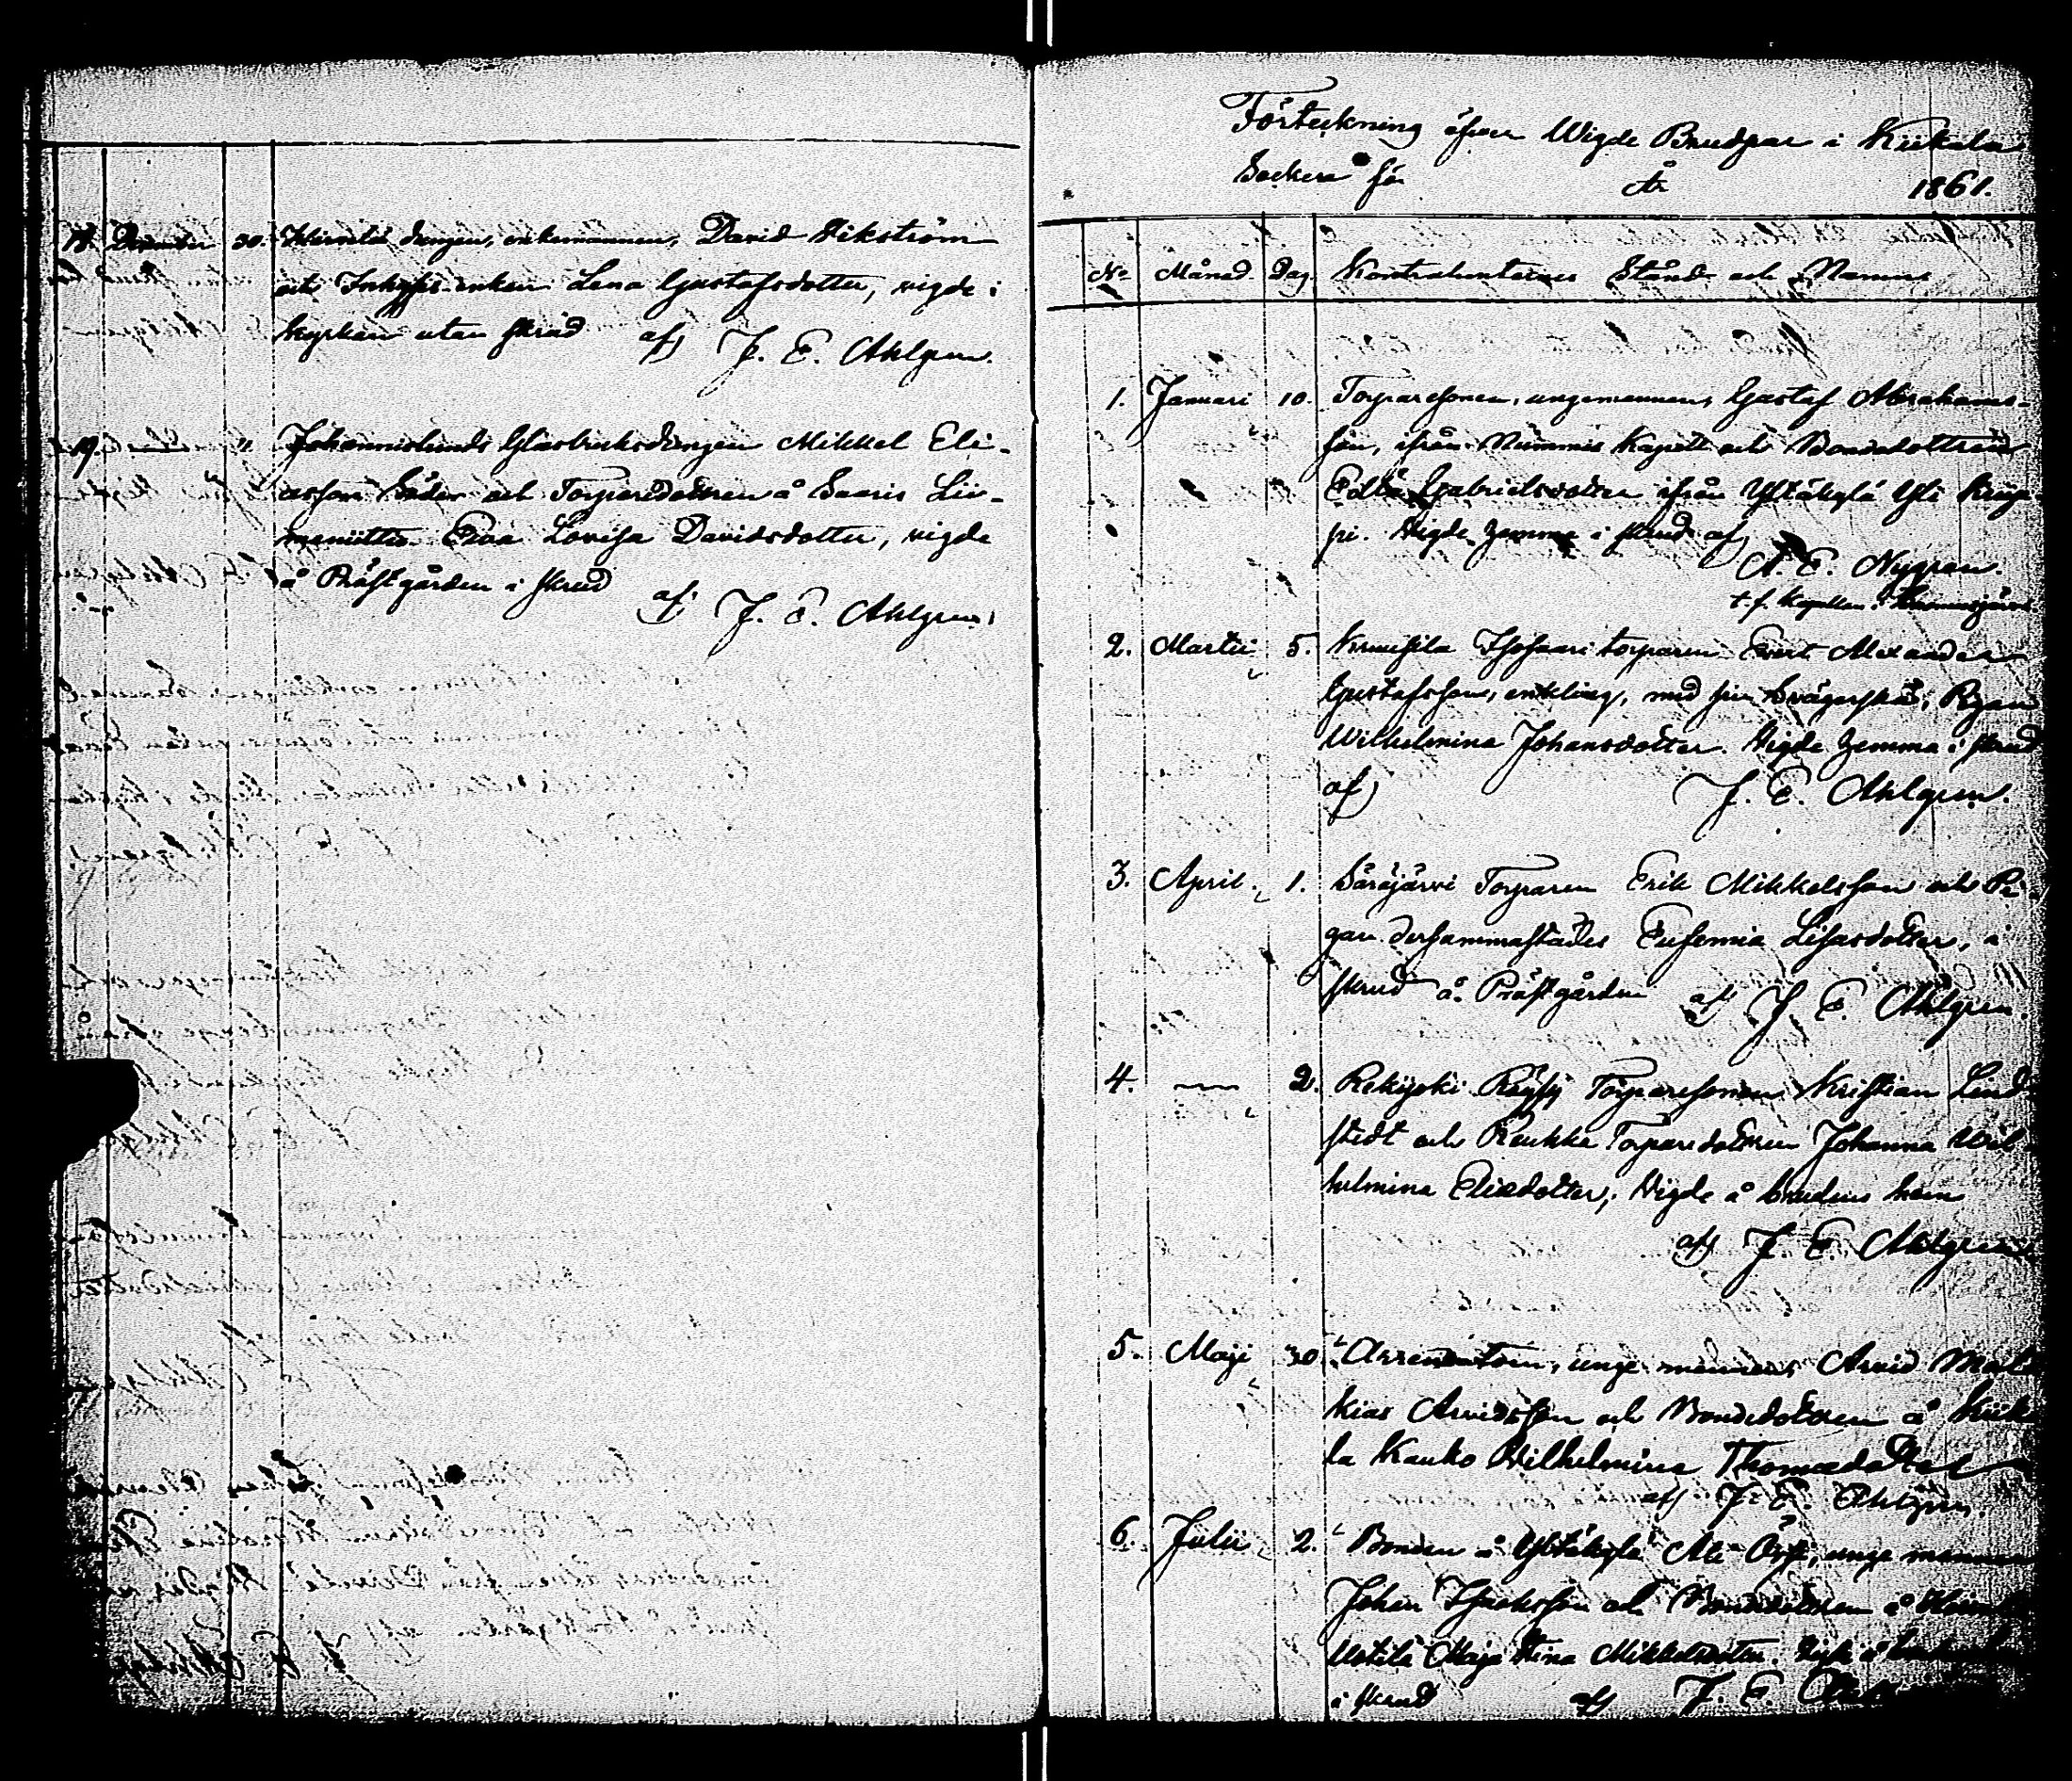 18. December 30. drengen, enkemannen, David Vikström
och Inhyses enkan Lena Gustafsdotter, vigde i
kyrkan utan skrud af J. E. Ahlgren.
19. " Johannislunds Glasbruksdrengen Mikkel Eli-
asson Söder och Torparedottren å Saaris Lii-
maniittu Eva Lovisa Davidsdotter, vigde
å Prästgården i skrud af J. E. Ahlgren.
Förteckning öfver Wigde Brudpar i Kiikala
Socken för År 1861.
No Månad Dag. Kontrahenternes Stånd och Namn
1. Januari 10. Torparesonen, ungemannen, Gustaf Abrahams-
son, ifrån Nummis Kapell och Bondedottren
Edla Gabrielsdotter ifrån Yltäkylä Yli
pi. Vigde hemma i skrud af
A. E. Nygren.
t. f. Kapellan i
2. Martii 5. Isosaari torparen Evert Alexander
Gustafsson, enkling, med sin Svägerska, Pigan
Wilhelmina Johansdotter. Vigde hemma i skrud
af J. E. Ahlgren.
3. April 1. Säräjärvi Torparen Erik Mikkelsson och Pi-
gan dersammastädes Eufemia Lisasdotter, i
skrud å Prästgården af J. E. Ahlgren.
4. — 2. Rekijoki Räysy Torparesonen Kristian Lind
stedt och Torparedottren Johanna Wil
helmina Eliedotter; Vigde å brudens hem
af J. E. Ahlgren
5. Maji 30. Arrendatorn, unge mannen Arvid Mat
kias Arvidsson och Bondedottren å Kiika
la Kauko Wilhelmina Thomasdotter
af J. E. Ahlgren.
6. Julii 2. Bonden å Yltäkylä Ali unge mannen
Johan Isaksson och Bondedottren å
Uotila Maja Stina Mikkelsdotter. Vigde å
i skrud af J. E.